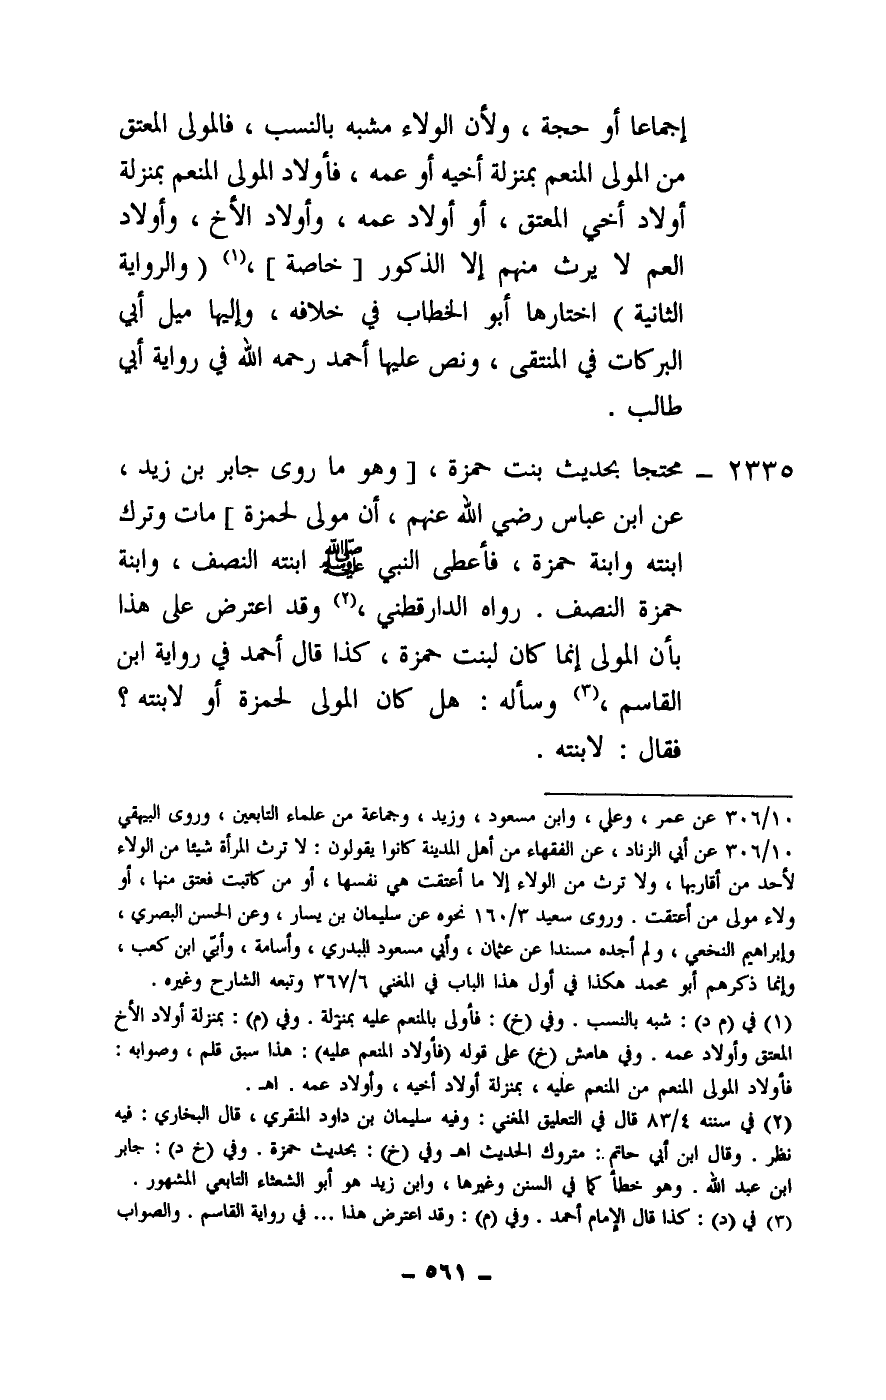 إجماعا أو حجة ، ولأن الولاء مشبه بالنسب ، فالمولى المعتق
من المولى المنعم بمنزلة أخيه أو عمه ، فأولاد المولى المنعم بمنزلة
أولاد أخي المعتق ، أو أولاد عمه ، وأولاد الأخ ، وأولاد
العم لا يرث منهم إلا الذكور [ خاصة ] ،(١) ( والرواية
الثانية ) اختارها أبو الخطاب في خلافه ، وإليها ميل أبي
البركات في المنتقى ، ونص عليها أحمد رحمه الله في رواية أبي
طالب .
٢٣٣٥ ـ محتجا بحديث بنت حمزة ، [ وهو ما روى جابر بن زيد ،
عن ابن عباس رضي الله عنهم ، أن مولى لحمزة ] مات وترك
ابنته وابنة حمزة ، فأعطى النبي ﷺ ابنته النصف ، وابنة
حمزة النصف . رواه الدارقطني ،(٢) وقد اعترض على هذا
بأن المولى إنما كان لبنت حمزة ، كذا قال أحمد في رواية ابن
القاسم ،(٣) وسأله : هل كان المولى لحمزة أو لابنته ؟
فقال : لابنته .
٣٠٦/١٠ عن عمر ، وعلي ، وابن مسعود ، وزيد ، وجماعة من علماء التابعين ، وروى البيهقي
٣٠٦/١٠ عن أبي الزناد ، عن الفقهاء من أهل المدينة كانوا يقولون : لا ترث المرأة شيئا من الولاء
لأحد من أقاربها ، ولا ترث من الولاء إلا ما أعتقت هي نفسها ، أو من كاتبت فعتق منها ، أو
ولاء مولى من أعتقت . وروى سعيد ١٦٠/٣ نحوه عن سليمان بن يسار ، وعن الحسن البصري ،
وإبراهيم النخعي ، ولم أجده مسندا عن عثمان ، وأبي مسعود البدري ، وأسامة ، وأبيّ ابن كعب ،
وإنما ذكرهم أبو محمد هكذا في أول هذا الباب في المغني ٣٦٧/٦ وتبعه الشارح وغيره .
(١) في (م د) : شبه بالنسب . وفي (خ) : فأولى بالمنعم عليه بمنزلة . وفي (م) : بمنزلة أولاد الأخ
المعتق وأولاد عمه . وفي هامش (خ) على قوله (فأولاد المنعم عليه) : هذا سبق قلم ، وصوابه :
فأولاد المولى المنعم من المنعم عليه ، بمنزلة أولاد أخيه ، وأولاد عمه . اهـ .
(٢) في سننه ٨٣/٤ قال في التعليق المغني : وفيه سليمان بن داود المنقري ، قال البخاري : فيه
نظر . وقال ابن أبي حاتم : متروك الحديث اهـ وفي (خ) : بحديث حمزة . وفي (خ د) : جابر
ابن عبد الله . وهو خطأ كما في السنن وغيرها ، وابن زيد هو أبو الشعثاء التابعي المشهور .
(٣) في (د) : كذا قال الإمام أحمد . وفي (م) : وقد اعترض هذا ... في رواية القاسم . والصواب
ـ ٥٦١ ـ